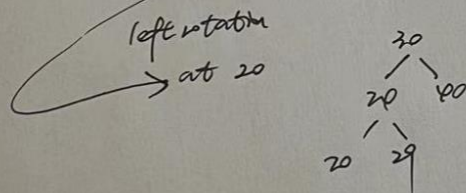 left rotation
at 20
30
20 40
20 29